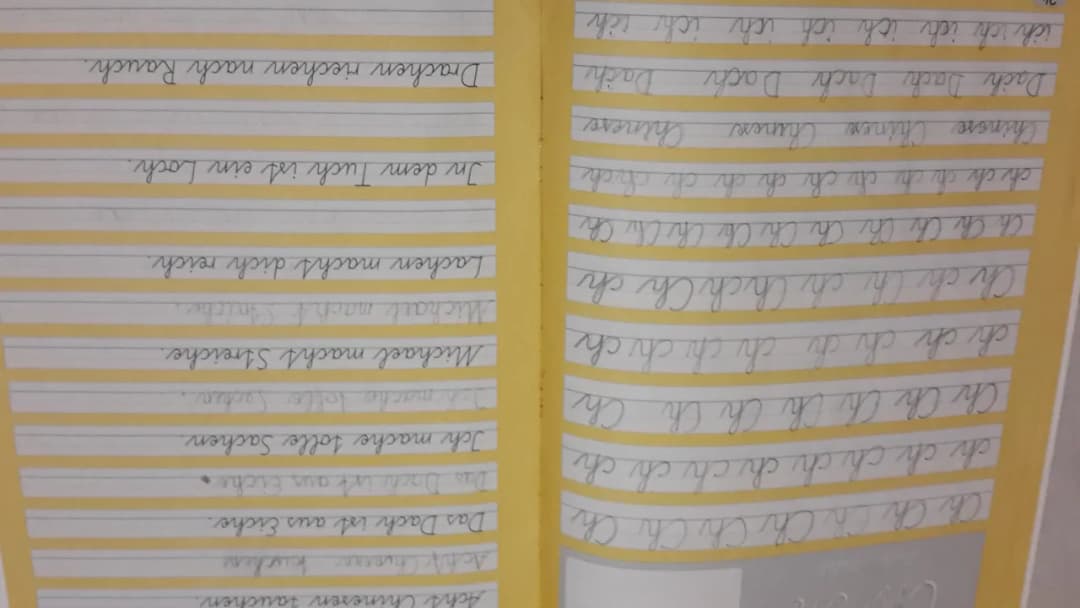 Ch Ch Ch Ch Ch Ch Ch Ch
ch ch ch ch ch ch ch ch ch
Ch Ch Ch Ch Ch Ch Ch Ch
ch ch ch ch ch ch ch ch ch
Ch ch Ch Ch ch Ch ch Ch ch
Ch Ch Ch Ch Ch Ch Ch Ch Ch Ch
ch ch ch ch ch ch ch ch ch ch
Chinese Chinese Chinese Chinese Chinese
Dach Dach Dach Dach Dach Dach
ich ich ich ich ich ich ich ich ich
Acht Chinesen tauchen.
Acht
Das Dach ist aus Eiche.
Das Dach ist aus Eiche.
Ich mache tolle Sachen.
Ich mache tolle Sachen.
Michael macht Streiche.
Michael macht Streiche.
Lachen macht dich reich.
In dem Tuch ist ein Loch.
Drachen riechen nach Rauch.